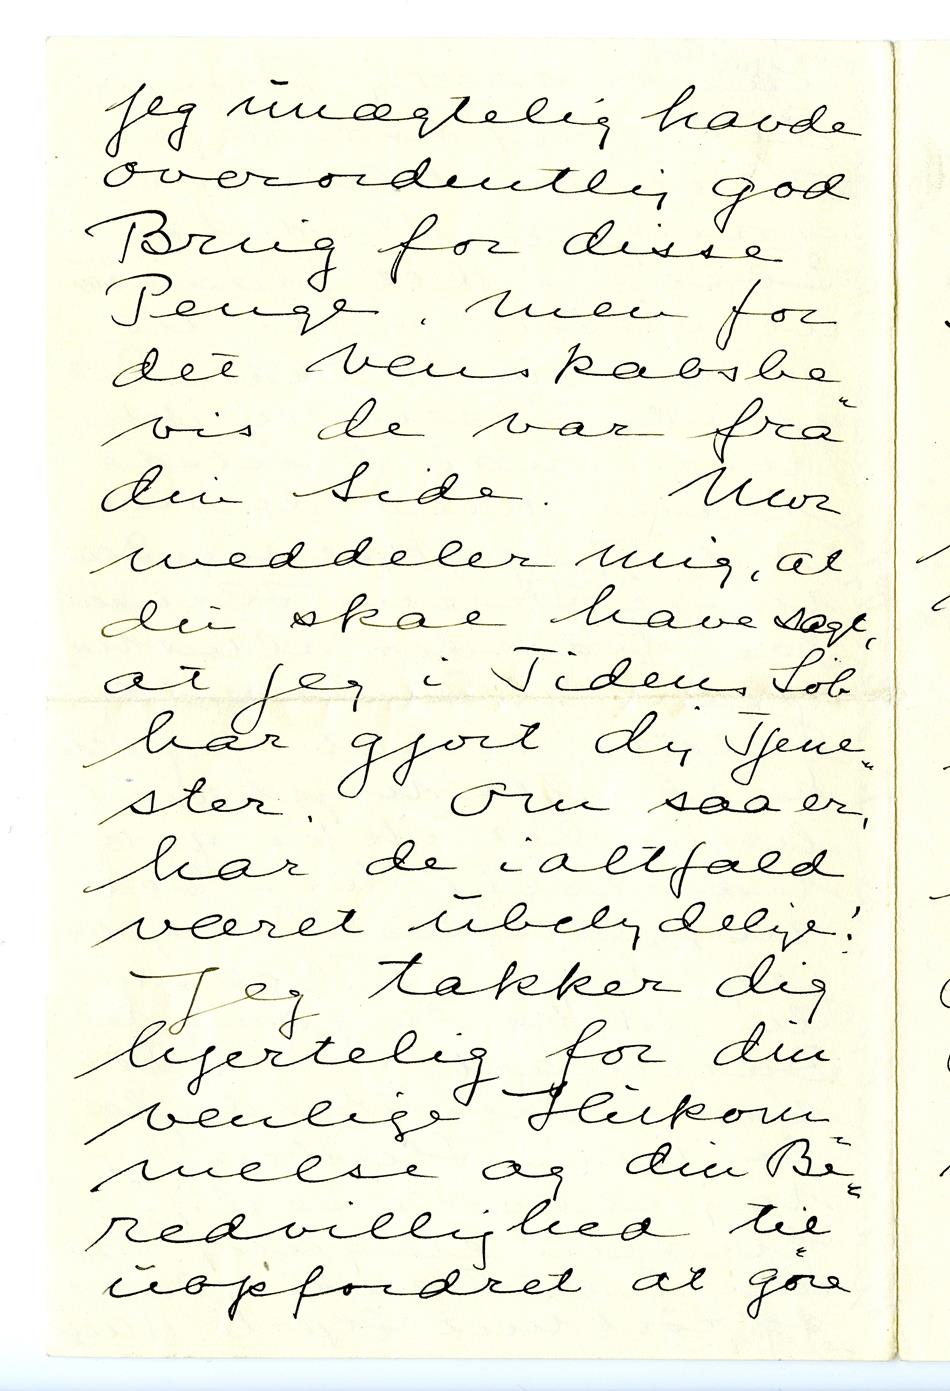 jeg unægtelig havde
overordentlig god
Brug for disse
Penge, men for
det Venskabsbe-
vis de var fra
din Side. Mor
meddeler mig, at
du skal have sagt,
at jeg i Tidens Løb
har gjort dig Tjene-
ster. Om saa er,
har de ialtfald
været ubelydelige!
Jeg takker dig
hjertelig for din
venlige Hukom-
melse og din Be-
redvillighed til
uopfordret at göre